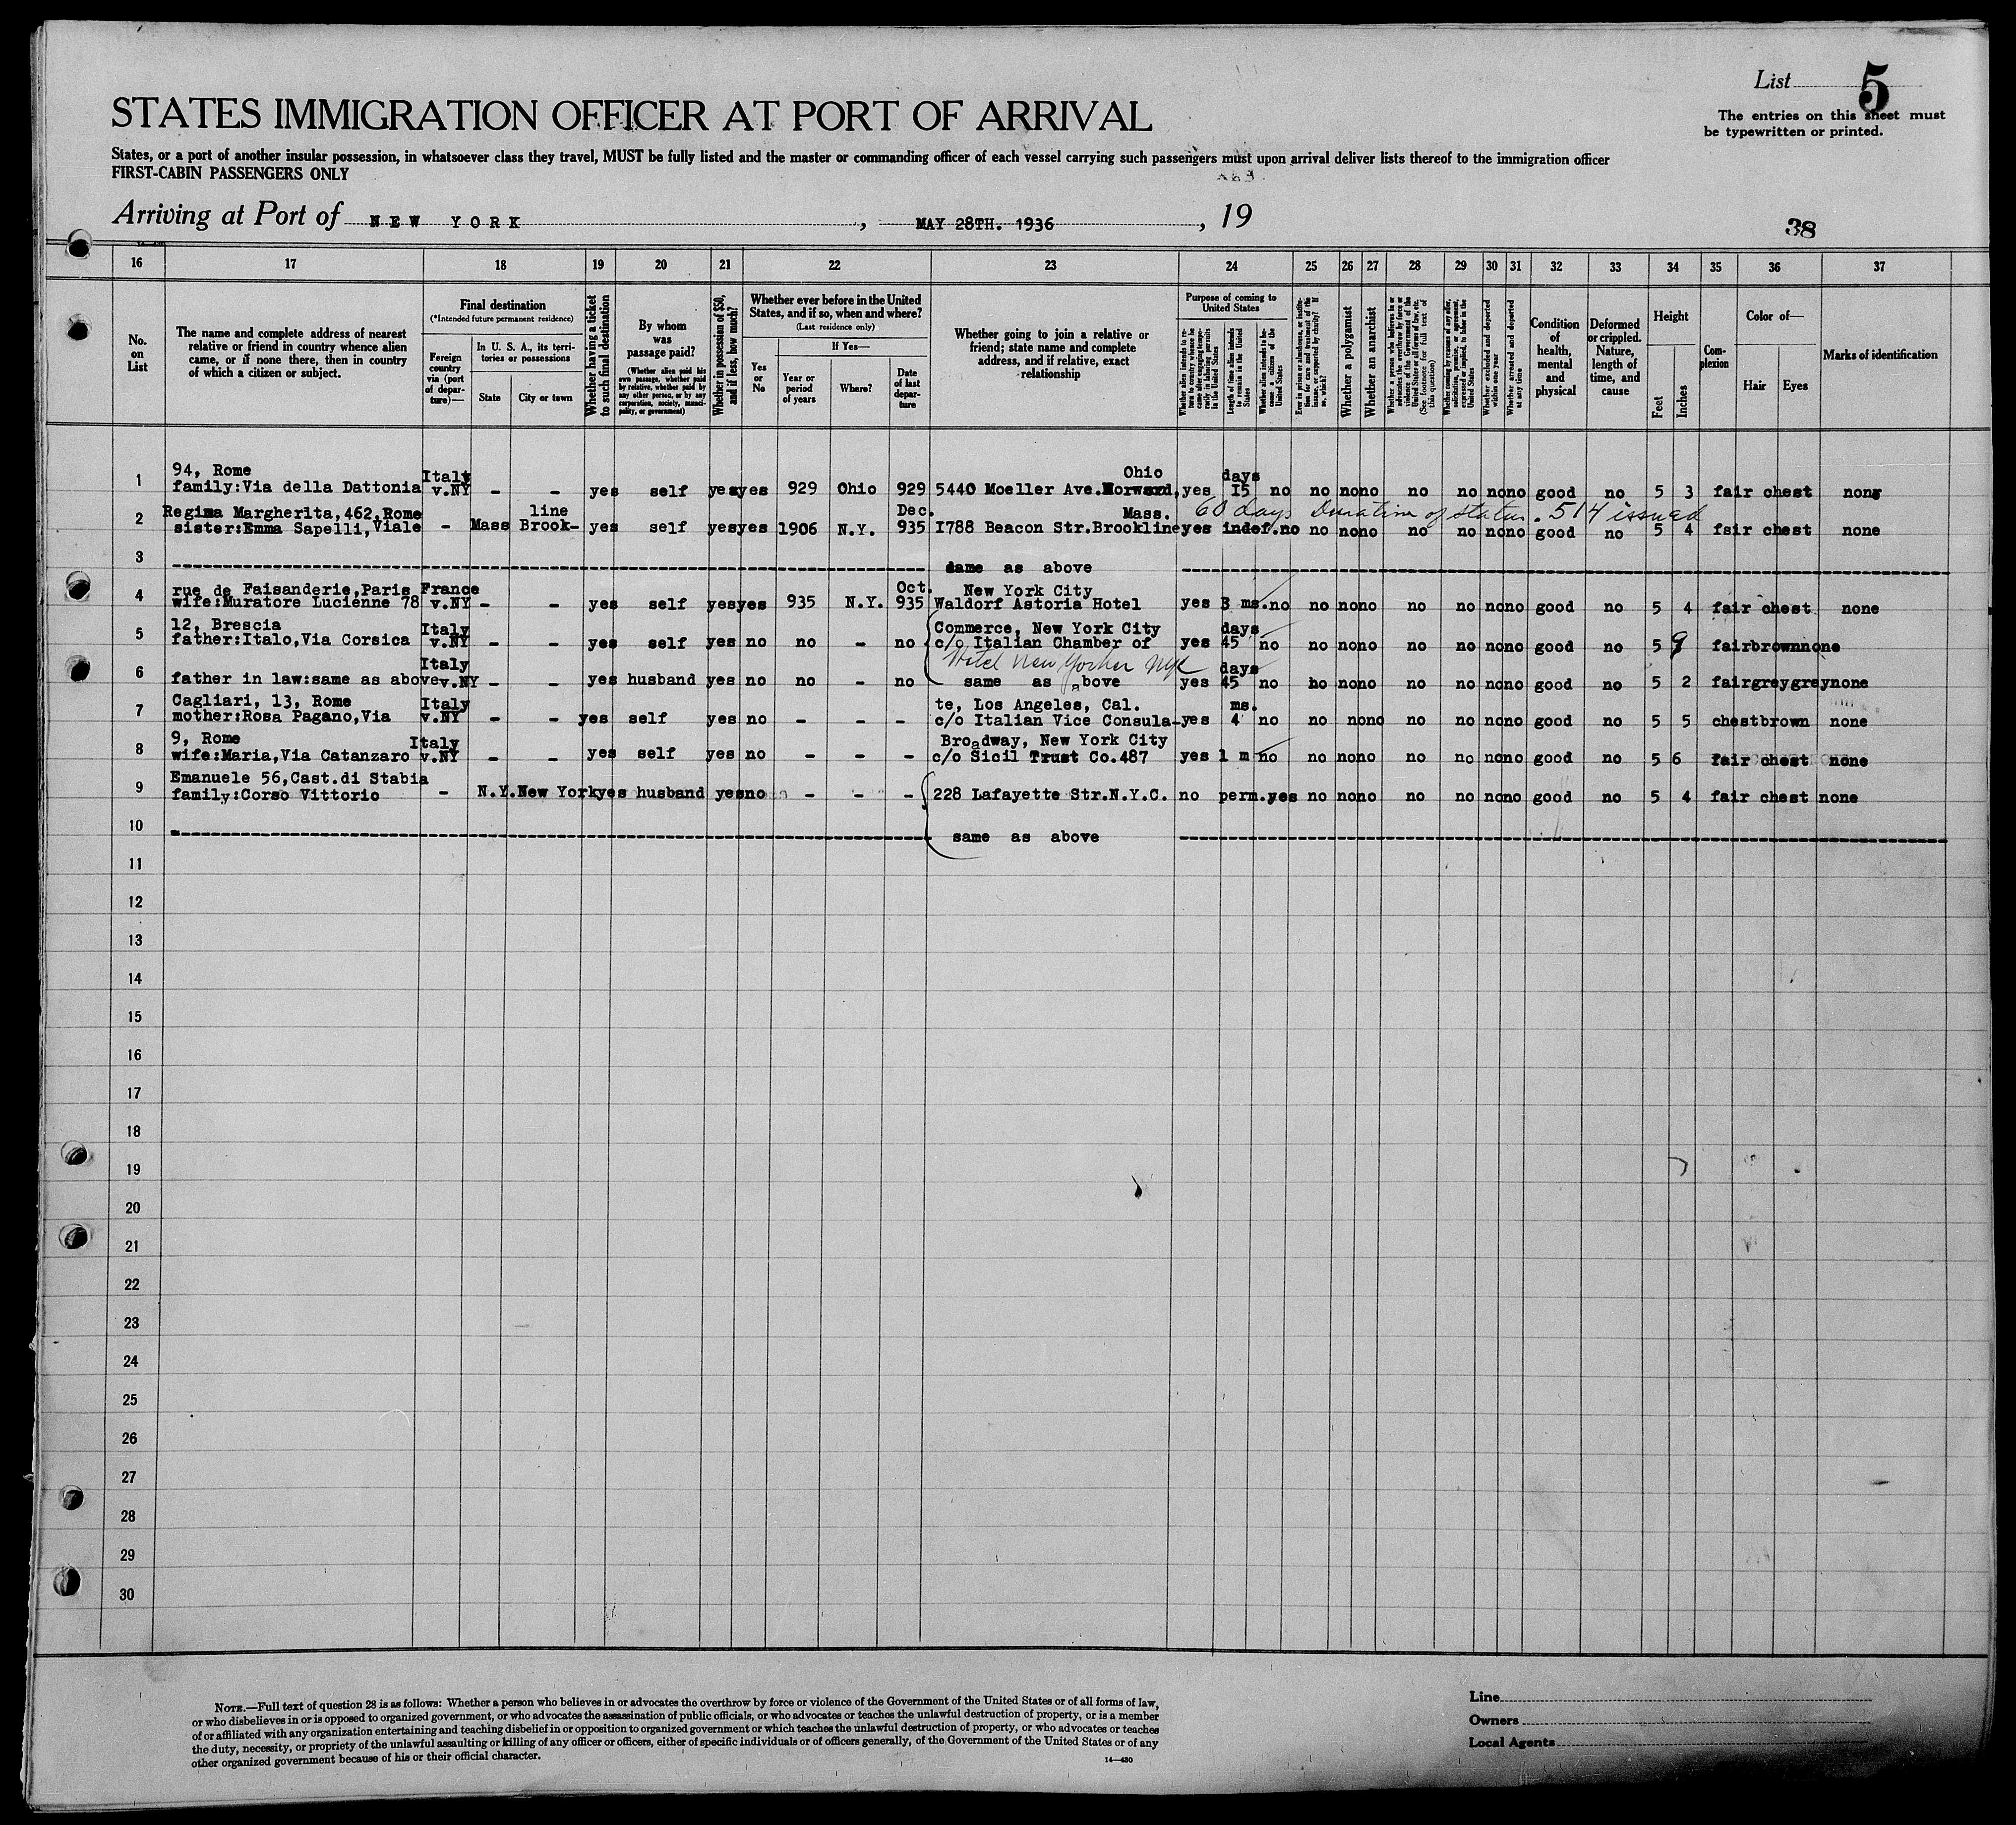 List 5
The entries on this sheet must
be typewritten or printed.
STATES IMMIGRATION OFFICER AT PORT OF ARRIVAL
States, or a port of another insular possession, in whatsoever class they travel, MUST be fully listed and the master or commanding officer of each vessel carrying such passengers must upon arrival deliver lists thereof to the immigration officer
FIRST-CABIN PASSENGERS ONLY
Arriving at Port of NEW YORK, MAY 28TH. 1936, 19
38
16 17 18 19 20 21 22 23 24 25 26 27 28 29 30 31 32 33 34 35 36 37
No. on List
The name and complete address of nearest
relative or friend in country whence alien
came, or if none there, then in country
of which a citizen or subject.
Final destination
(*Intended future permanent residence)
Foreign country via (port of departure)—
In U. S. A., its territories or possessions
State
City or town
Whether having a ticket to such final destination
By whom was passage paid?
(Whether alien paid his own passage, whether paid by relative, whether paid by any other person, or by any corporation, society, municipality, or government)
Whether in possession of $50, and if less, how much?
Whether ever before in the United States, and if so, when and where?
(Last residence only)
Yes or No
If Yes—
Year or period of years
Where?
Date of last departure
Whether going to join a relative or
friend; state name and complete
address, and if relative, exact
relationship
Purpose of coming to United States
Whether alien intends to return to country whence he came after engaging temporarily in laboring pursuits in the United States
Length of time alien intends to remain in the United States
Whether alien intends to become a citizen of the United States
Ever in prison or almshouse, or institution for care and treatment of the insane, or supported by charity? If so, which?
Whether a polygamist
Whether an anarchist
Whether a person who believes in or advocates the overthrow by force or violence of the Government of the United States or all forms of law, etc. (See footnote for full text of this question)
Whether coming by reason of any offer, solicitation, promise, or agreement, expressed or implied, to labor in the United States
Whether excluded and deported within one year
Whether arrested and deported at any time
Condition of health, mental and physical
Deformed or crippled. Nature, length of time, and cause
Height
Feet
Inches
Complexion
Color of—
Hair
Eyes
Marks of identification
94, Rome Italy Ohio days
1 family:Via della Dattonia v.NY - - yes self yes yes 929 Ohio 929 5440 Moeller Ave.Norword, yes 15 no no no no no no no no good no 5 3 fair chest none
Regina Margherita,462,Rome line Dec. Mass. 60 days Duration of status. 514 issued
2 sister:Emma Sapelli,Viale - Mass Brook- yes self yes yes 1906 N.Y. 935 1788 Beacon Str.Brookline yes indef. no no no no no no no no good no 5 4 fair chest none
3 same as above
rue de Faisanderie,Paris France Oct. New York City
4 wife:Muratore Lucienne 78 v.NY - - yes self yes yes 935 N.Y. 935 Waldorf Astoria Hotel yes 3 ms. no no no no no no no no good no 5 4 fair chest none
12, Brescia Italy Commerce, New York City days
5 father:Italo,Via Corsica v.NY - - yes self yes no no - no c/o Italian Chamber of yes 45 no no no no no no no no good no 5 9 fair brown none
Italy Hotel New Yorker NYC days
6 father in law:same as above v.NY - - yes husband yes no no - no same as above yes 45 no no no no no no no no good no 5 2 fair grey grey none
Cagliari, 13, Rome Italy te, Los Angeles, Cal. ms.
7 mother:Rosa Pagano,Via v.NY - - yes self yes no - - - c/o Italian Vice Consula- yes 4 no no no no no no no no good no 5 5 chest brown none
9, Rome Italy Broadway, New York City
8 wife:Maria,Via Catanzaro v.NY - - yes self yes no - - - c/o Sicil Trust Co.487 yes 1 m no no no no no no no no good no 5 6 fair chest none
Emanuele 56,Cast.di Stabia
9 family:Corso Vittorio - N.Y. New York yes husband yes no - - - 228 Lafayette Str.N.Y.C. no perm. yes no no no no no no no good no 5 4 fair chest none
10 same as above
11
12
13
14
15
16
17
18
19
20
21
22
23
24
25
26
27
28
29
30
NOTE.—Full text of question 28 is as follows: Whether a person who believes in or advocates the overthrow by force or violence of the Government of the United States or of all forms of law,
or who disbelieves in or is opposed to organized government, or who advocates the assassination of public officials, or who advocates or teaches the unlawful destruction of property, or is a member
of or affiliated with any organization entertaining and teaching disbelief in or opposition to organized government or which teaches the unlawful destruction of property, or who advocates or teaches
the duty, necessity, or propriety of the unlawful assaulting or killing of any officer or officers, either of specific individuals or of officers generally, of the Government of the United States or of any
other organized government because of his or their official character.
14—430
Line
Owners
Local Agents